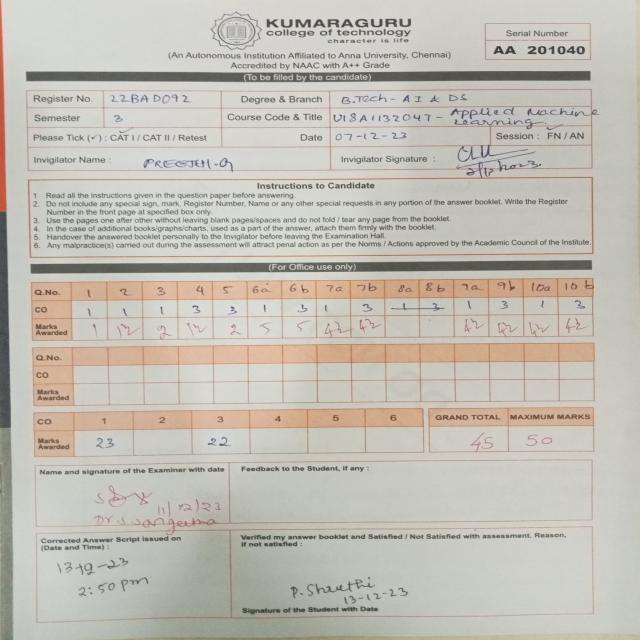 KUMARAGURU
college of technology
character is life
Serial Number
AA 201040
(An Autonomous Institution Affiliated to Anna University, Chennai)
Accredited by NAAC with A++ Grade
(To be filled by the candidate)
Register No. 22BAD092 Degree & Branch B.Tech - AI & DS
Semester 3 Course Code & Title U18AI132047 - Applied Machine Learning
Please Tick (✓) : CAT I / CAT II / Retest Date 07-12-23 Session : FN / AN
Invigilator Name : Invigilator Signature :
Instructions to Candidate
1 Read all the instructions given in the question paper before answering.
2. Do not include any special sign, mark, Register Number, Name or any other special requests in any portion of the answer booklet. Write the Register
Number in the front page at specified box only.
3. Use the pages one after other without leaving blank pages/spaces and do not fold / tear any page from the booklet.
4. In the case of additional books/graphs/charts, used as a part of the answer, attach them firmly with the booklet.
5. Handover the answered booklet personally to the Invigilator before leaving the Examination Hall.
6. Any malpractice(s) carried out during the assessment will attract penal action as per the Norms / Actions approved by the Academic Council of the Institute.
(For Office use only)
Q.No. 1 2 3 4 5 6a 6b 7a 7b 8a 8b 9a 9b 10a 10b
CO 1 1 1 3 3 1 3 1 3 1 3 1 3 1 3
Marks Awarded 1 1½ 2 1½ 2 5 5 4½ 4½ 4½ 4½ 4½ 4½
Q.No.
CO
Marks Awarded
CO 1 2 3 4 5 6 GRAND TOTAL MAXIMUM MARKS
Marks Awarded 23 22 45 50
Name and signature of the Examiner with date Feedback to the Student, if any :
11/12/23
Corrected Answer Script issued on
(Date and Time) :
Verified my answer booklet and Satisfied / Not Satisfied with assessment. Reason,
if not satisfied :
13-12-23
2:50 pm
P. Shruthi
13-12-23
Signature of the Student with Date